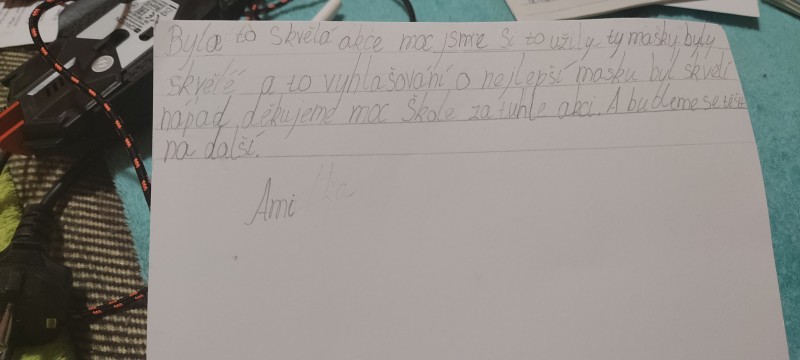 Byla to skvělá akce moc jsme si to užily ty masky byly
skvělé a to vyhlašování o nejlepší masku byl skvělí
nápad děkujeme moc škole za tuhle akci. A budeme se těšit
na další.
Ami